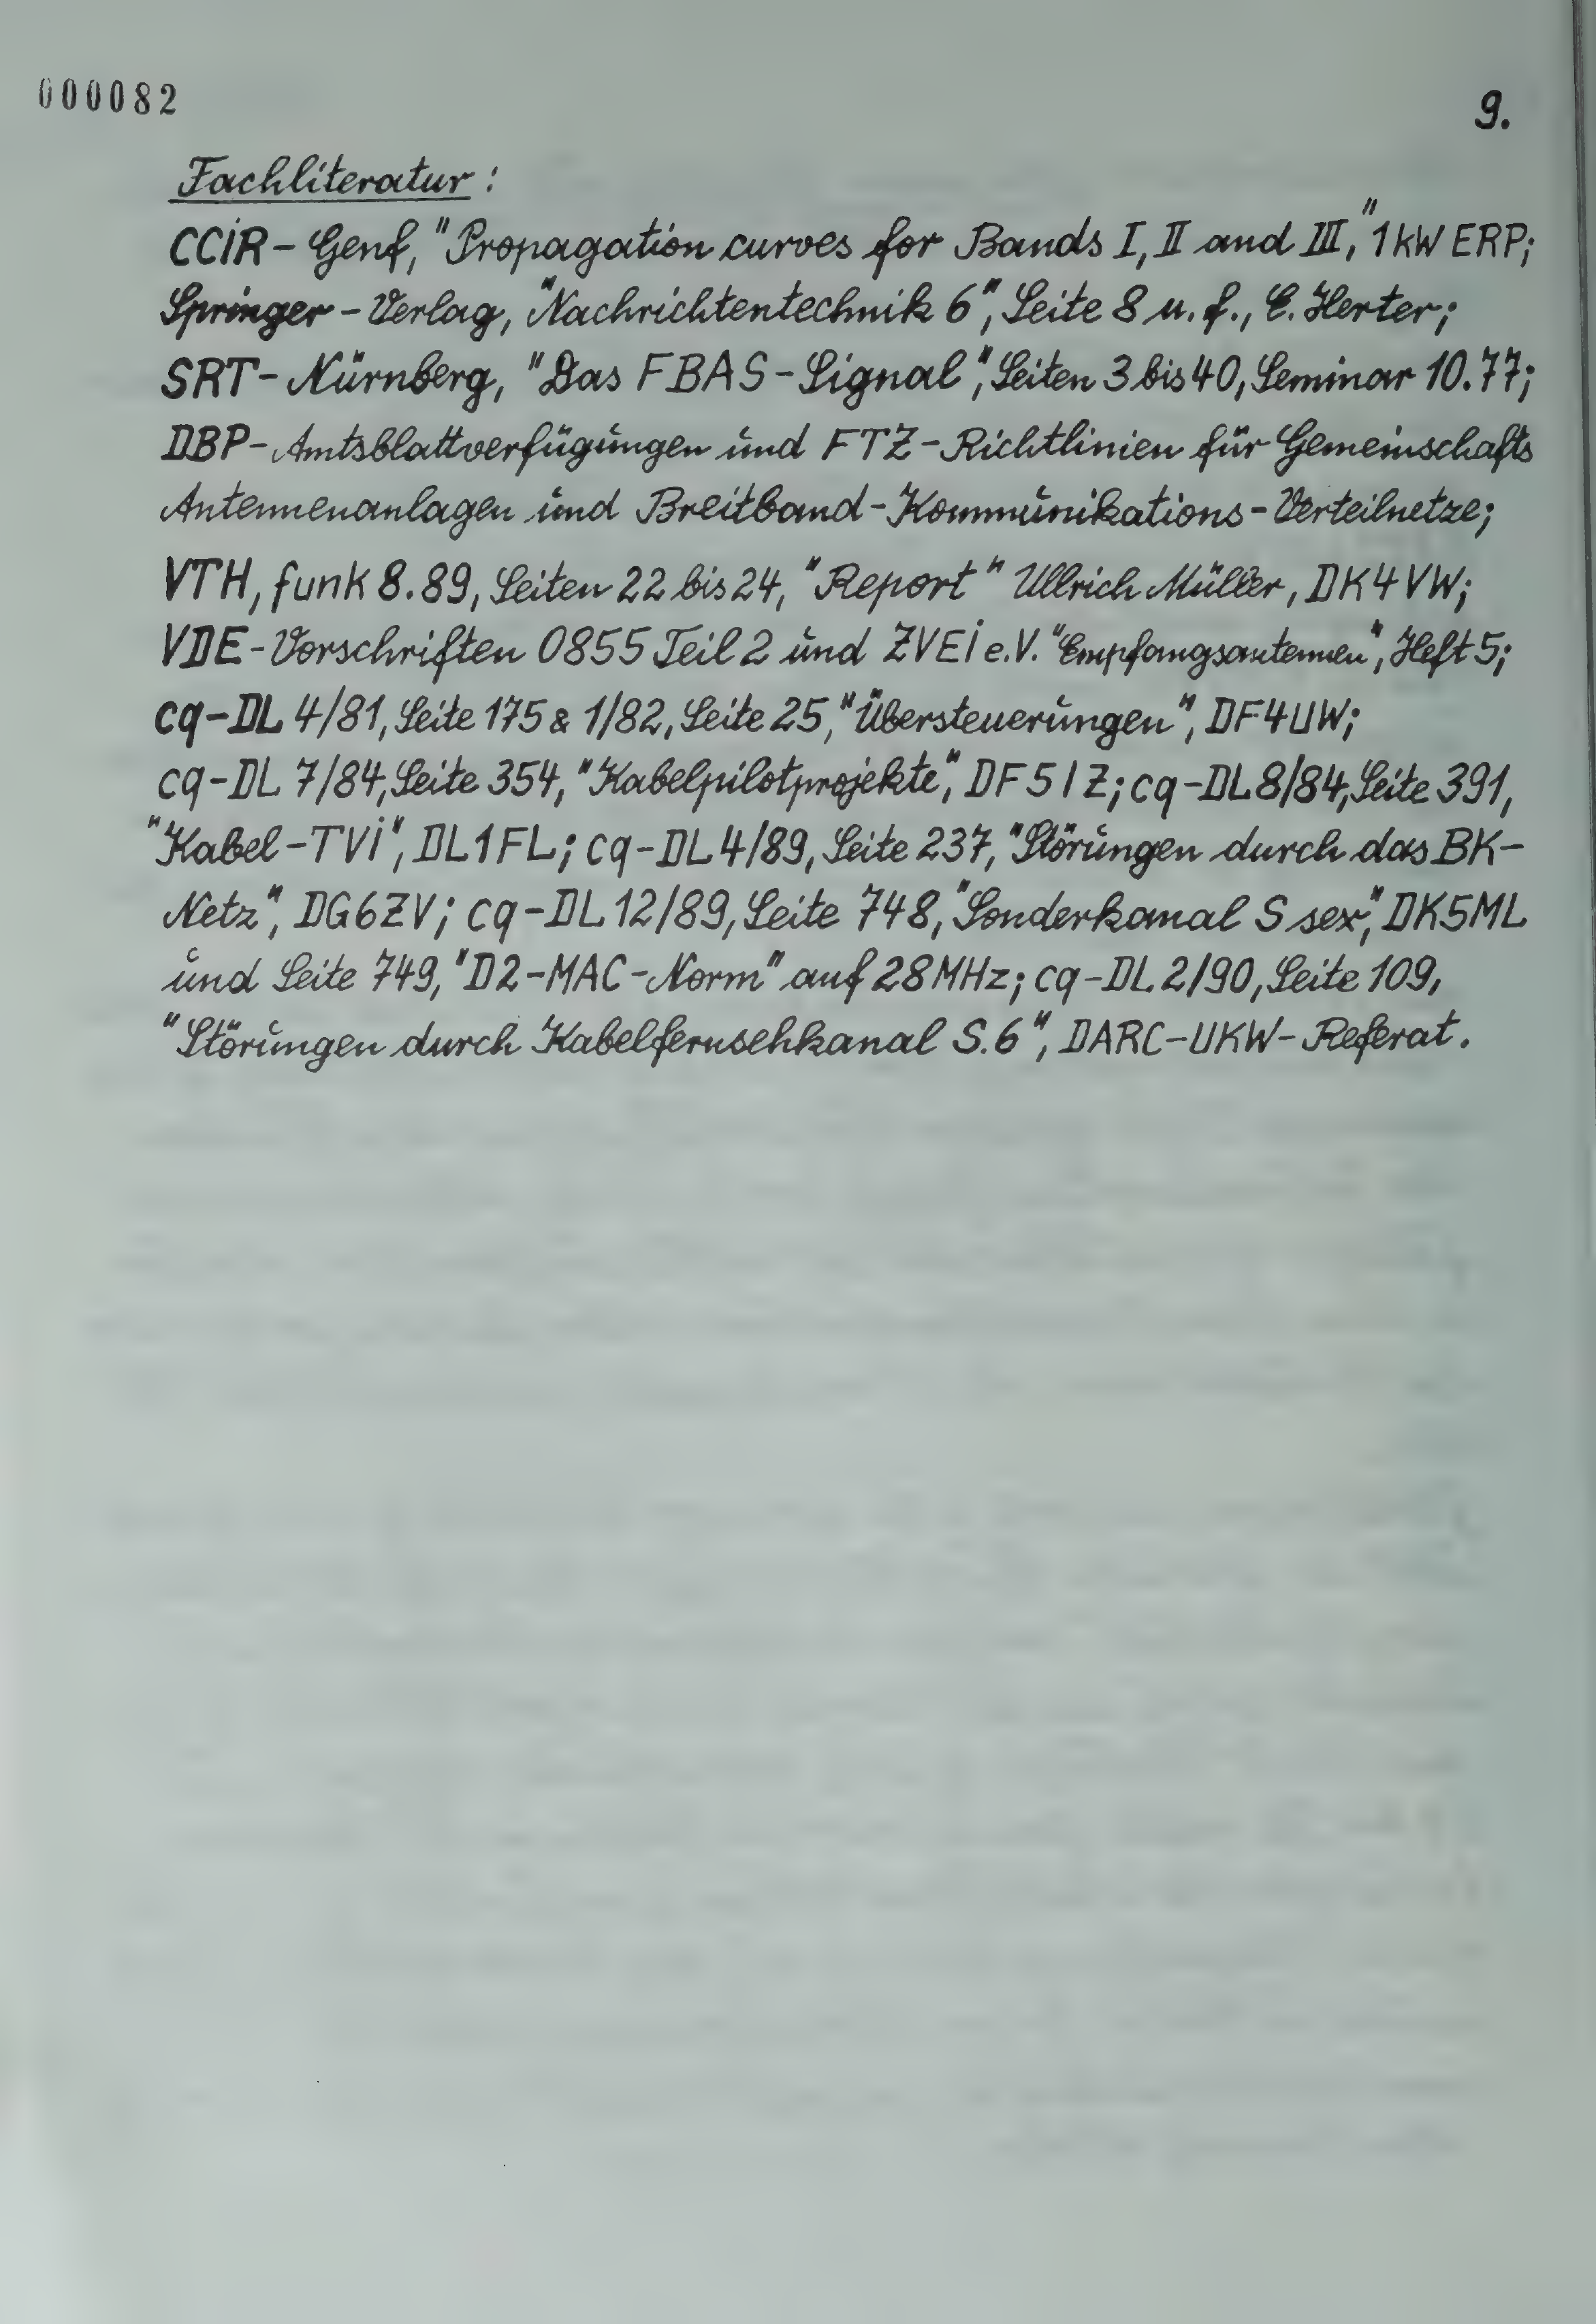 000082
9.
Fachliteratur:
CCIR - Genf, "Propagation curves for Bands I, II and III," 1kW ERP;
Springer - Verlag, "Nachrichtentechnik 6", Seite 8 u. f., E. Herter;
SRT - Nürnberg, "Das FBAS - Signal", Seiten 3 bis 40, Seminar 10.77;
DBP - Amtsblattverfügungen und FTZ - Richtlinien für Gemeinschafts
Antennenanlagen und Breitband - Kommunikations - Verteilnetze;
VTH, funk 8.89, Seiten 22 bis 24, "Report" Ullrich Müller, DK4VW;
VDE - Vorschriften 0855 Teil 2 und ZVEI e.V. "Empfangsantennen", Heft 5;
cq-DL 4/81, Seite 175 & 1/82, Seite 25, "Übersteuerungen", DF4UW;
cq-DL 7/84, Seite 354, "Kabelpilotprojekte", DF5IZ; cq-DL 8/84, Seite 391,
"Kabel-TVI", DL1FL; cq-DL 4/89, Seite 237, "Störungen durch das BK-
Netz", DG6ZV; cq-DL 12/89, Seite 748, "Sonderkanal S sex", DK5ML
und Seite 749, "D2-MAC-Norm" auf 28MHz; cq-DL 2/90, Seite 109,
"Störungen durch Kabelfernsehkanal S.6", DARC-UKW-Referat.